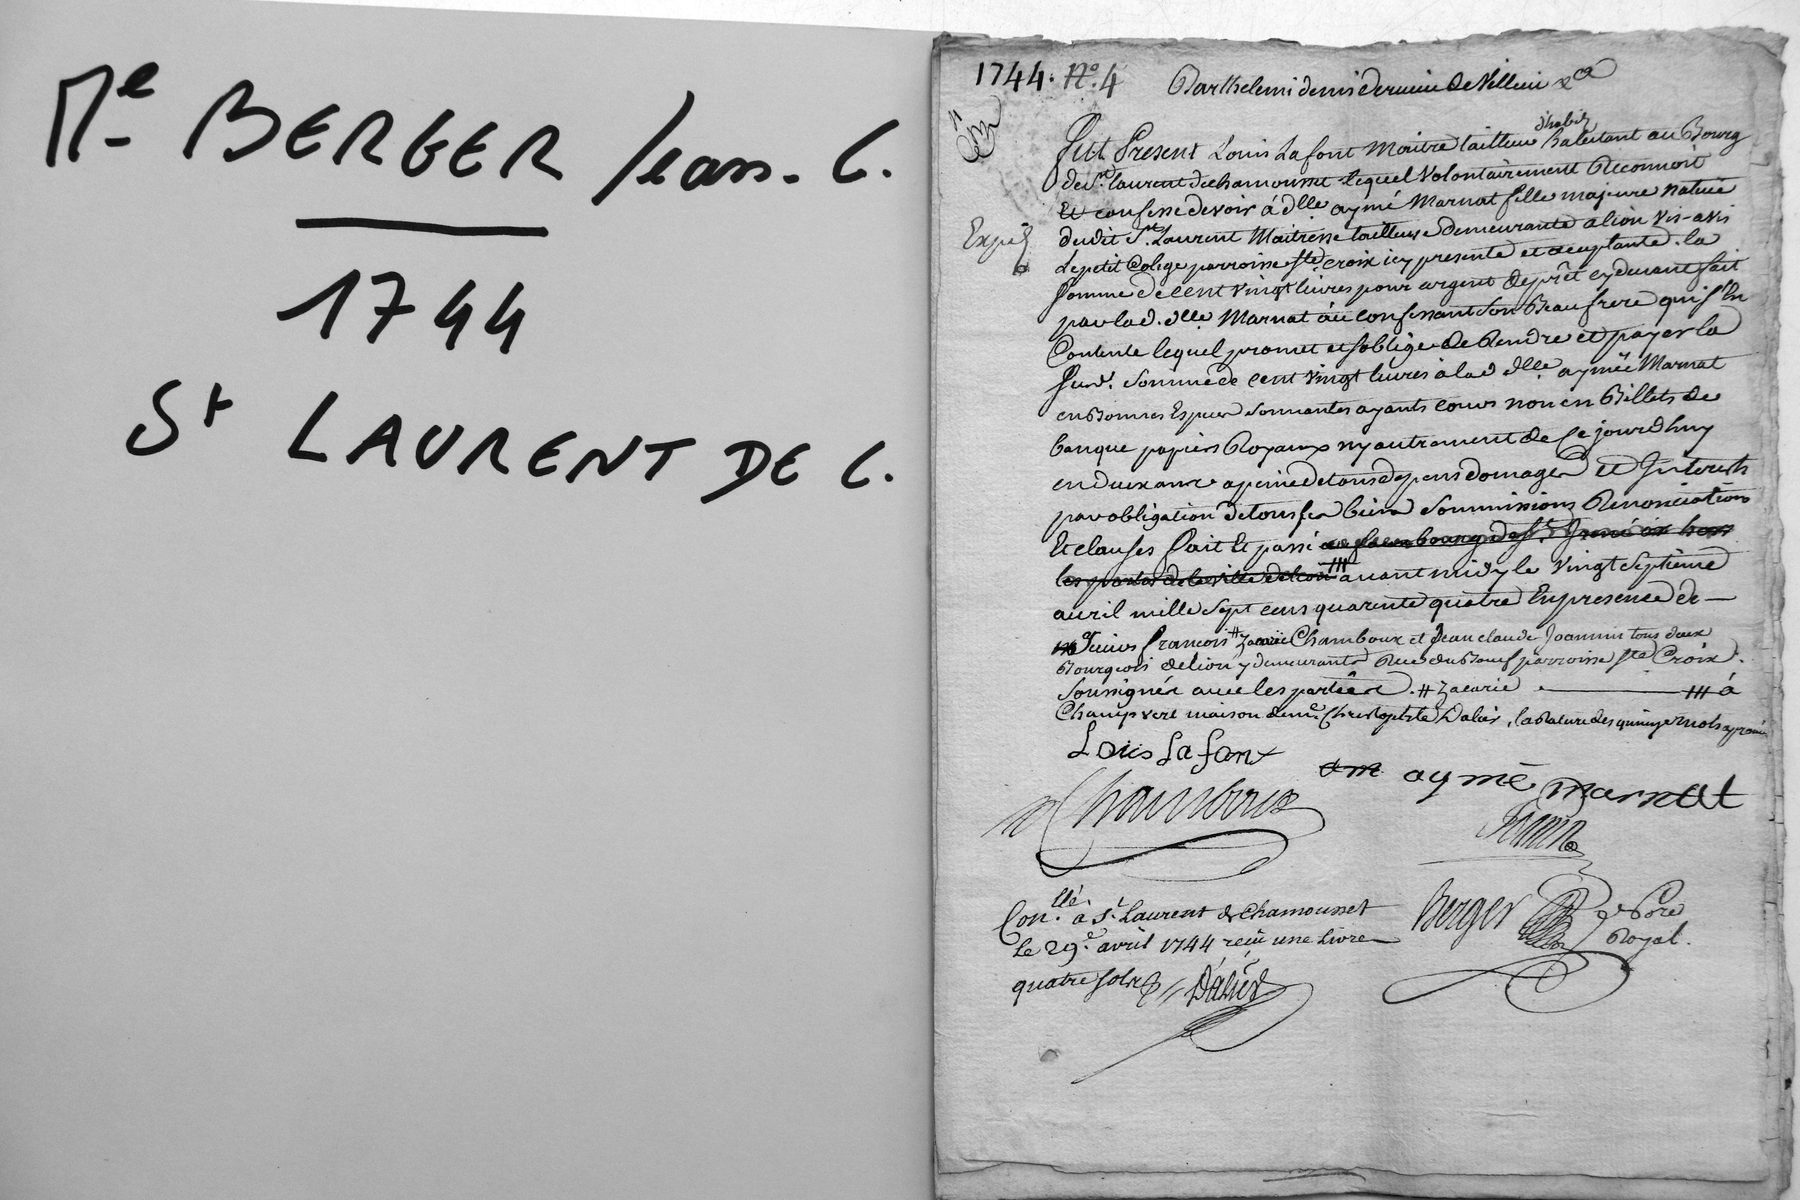 Me BERGER Jean-C.
1744
St LAURENT DE C.
1744. No. 4
Barthelemi denis dervieu de Villieu &ca
d'habits
Fut Present Louis Lafont Maitre tailleur habitant au Bourg
de St. laurent de chamousset lequel Volontairement Reconnoit
Et confesse devoir à dlle aymé Marnat fille majeure native
dudit St. Laurent Maitresse tailleuse demeurante a lion Vis-avis
Expé
le petit Colege parroisse ste. croix icy presente et acceptante. la
somme de cent vingt livres pour argent de prêt cy devant fait
par lad. dlle Marnat au confessant son Beaufrere qui s'en
Contente lequel promet et s'oblige de Rendre et payer la
susd. somme de cent vingt livres a lad dlle. aymée Marnat
en Bonnes Especes sonnantes ayants cours non en Billets de
banque papiers Royaux ny autrement de ce jourdhuy
en deux ans a peine de tous depens domages et Interests
par obligation de tous ses biens Soummissions Renonciations
Et clauses fait Et passé au fauxbourg de St. Irenée hors
les portes de la ville de lion /// avant midy le Vingt Septième
avril mille Sept cens quarente quatre En presence de
Sieurs francois # Chamboux et Jean claude Joannin tous deux
Bourgeois de lion y demeurants Rue du Boeuf parroisse ste Croix.
Soussignés avec les parties. # Zacarie . /// à
Champvert maison de mr. Christophle Dalier, la Rature des quinze mots aprouvée
Louis Lafont
am aymé marnat
Chamboux
Joanin
Conllé. à St. Laurent de Chamousset
le 29e avril 1744 reçu une livre
quatre sols // Daliés
Berger
Royal.